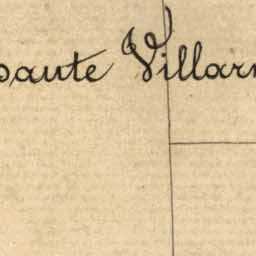 sante Villarr